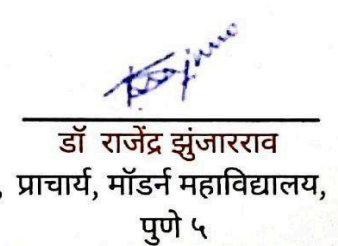 डॉ राजेंद्र झुंजारराव
, प्राचार्य, मॉडर्न महाविद्यालय,
पुणे ५